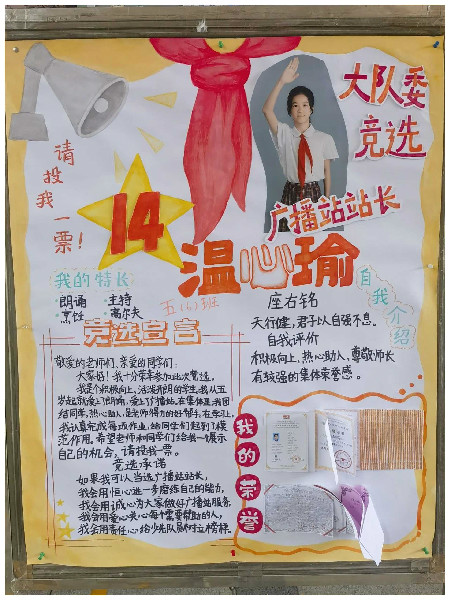 大队委
竞选
请投我一票！
14
广播站站长
温心瑜
五(4)班
我的特长
·朗诵 ·主持
·烹饪 ·高尔夫
自我介绍
座右铭
天行健，君子以自强不息。
自我评价
积极向上，热心助人，尊敬师长
有较强的集体荣誉感。
竞选宣言
敬爱的老师们，亲爱的同学们：
大家好！我十分荣幸参加此次竞选。
我是个积极向上，活泼开朗的学生，我从五
岁起就爱上了朗诵，爱上了广播站，在集体里，我团
结同学，热心助人，是老师得力的好帮手，在学习上，
我认真完成每项作业，给同学们起到了模
范作用，希望老师和同学们给我一次展示
自己的机会，请投我一票。
竞选承诺
如果我可以当选广播站站长，
我会用恒心进一步磨练自己的能力，
我会用诚心为大家做好广播站服务，
我会用爱心关心每个需要帮助的人，
我会用责任心给少先队员树立榜样。
我的荣誉